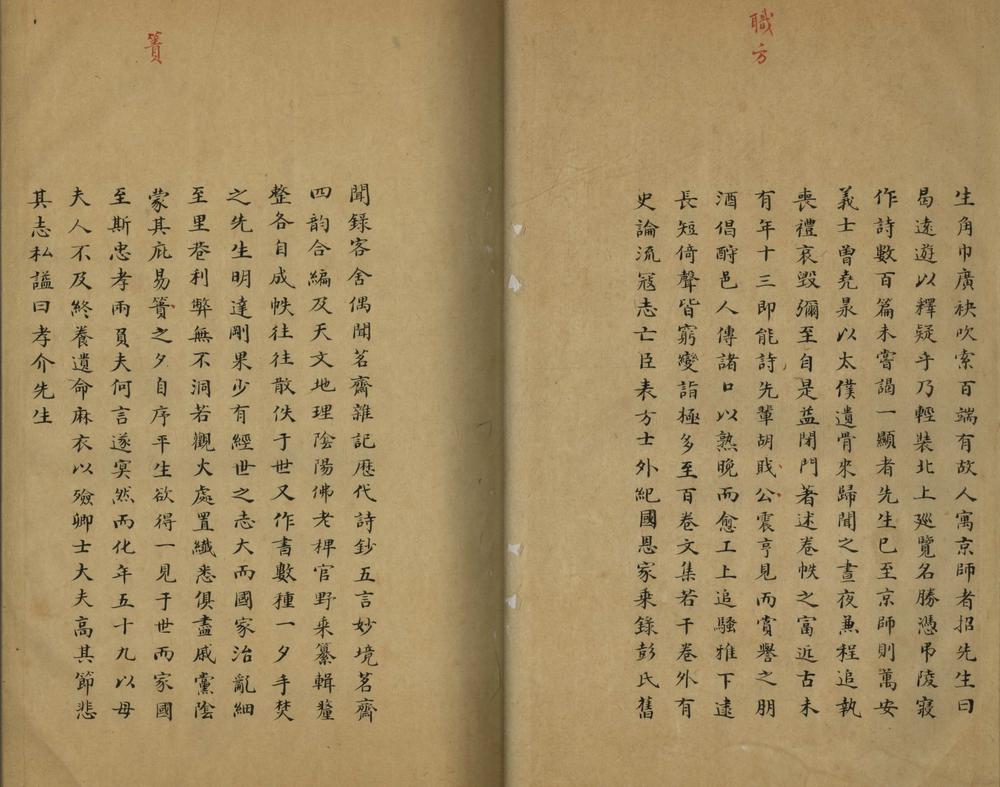 職方
生角巾廣袂吹索百端有故人寓京師者招先生曰
曷遠遊以釋疑乎乃輕裝北上廵覽名勝憑弔陵寢
作詩數百篇未嘗謁一顯者先生已至京師則萬安
義士曽堯杲以太僕遺骨來歸聞之晝夜兼程追執
喪禮哀毀彌至自是益閉門著述卷帙之富近古未
有年十三即能詩先輩胡職公震亨見而賞譽之朋
酒倡酧邑人傳諸口以熟晚而愈工上追騷雅下逮
長短倚聲皆窮變詣極多至百卷文集若干卷外有
史論流冦志亡臣表方士外紀國恩家乘錄彭氏舊
簣
聞錄客舍偶聞茗齋雜記歴代詩鈔五言妙境茗齋
四韵合編及天文地理陰陽佛老稗官野乘纂輯釐
整各自成帙往往散佚于世又作書數種一夕手焚
之先生明達剛果少有經世之志大而國家治亂細
至里巷利弊無不洞若觀火處置纖悉俱盡戚黨陰
蒙其庇易簀之夕自序平生欲得一見于世而家國
至斯忠孝兩負夫何言遂寞然而化年五十九以母
夫人不及終養遺命麻衣以殮卿士大夫高其節悲
其志私謚曰孝介先生